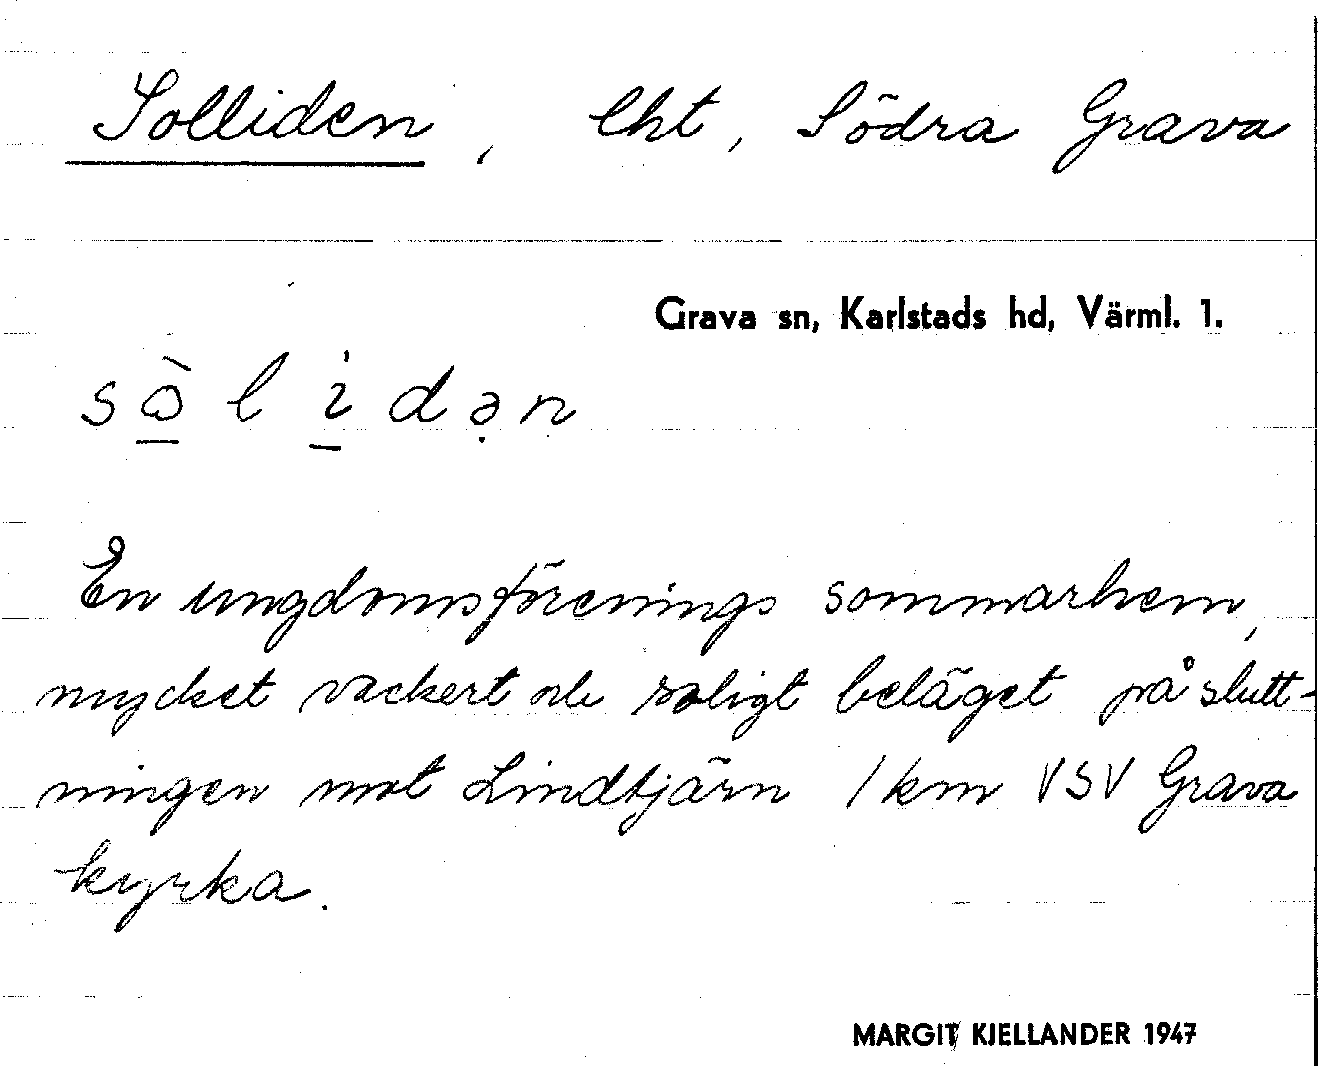 Solliden, lht, Södra Grava
Grava sn, Karlstads hd, Värml. 1.
sɷ̱̀li̱̍də̣n
En ungdomsförenings sommarhem,
mycket vackert och soligt beläget på slutt-
ningen mot Lindtjärn 1 km VSV Grava
kyrka.
MARGIT KJELLANDER 1947